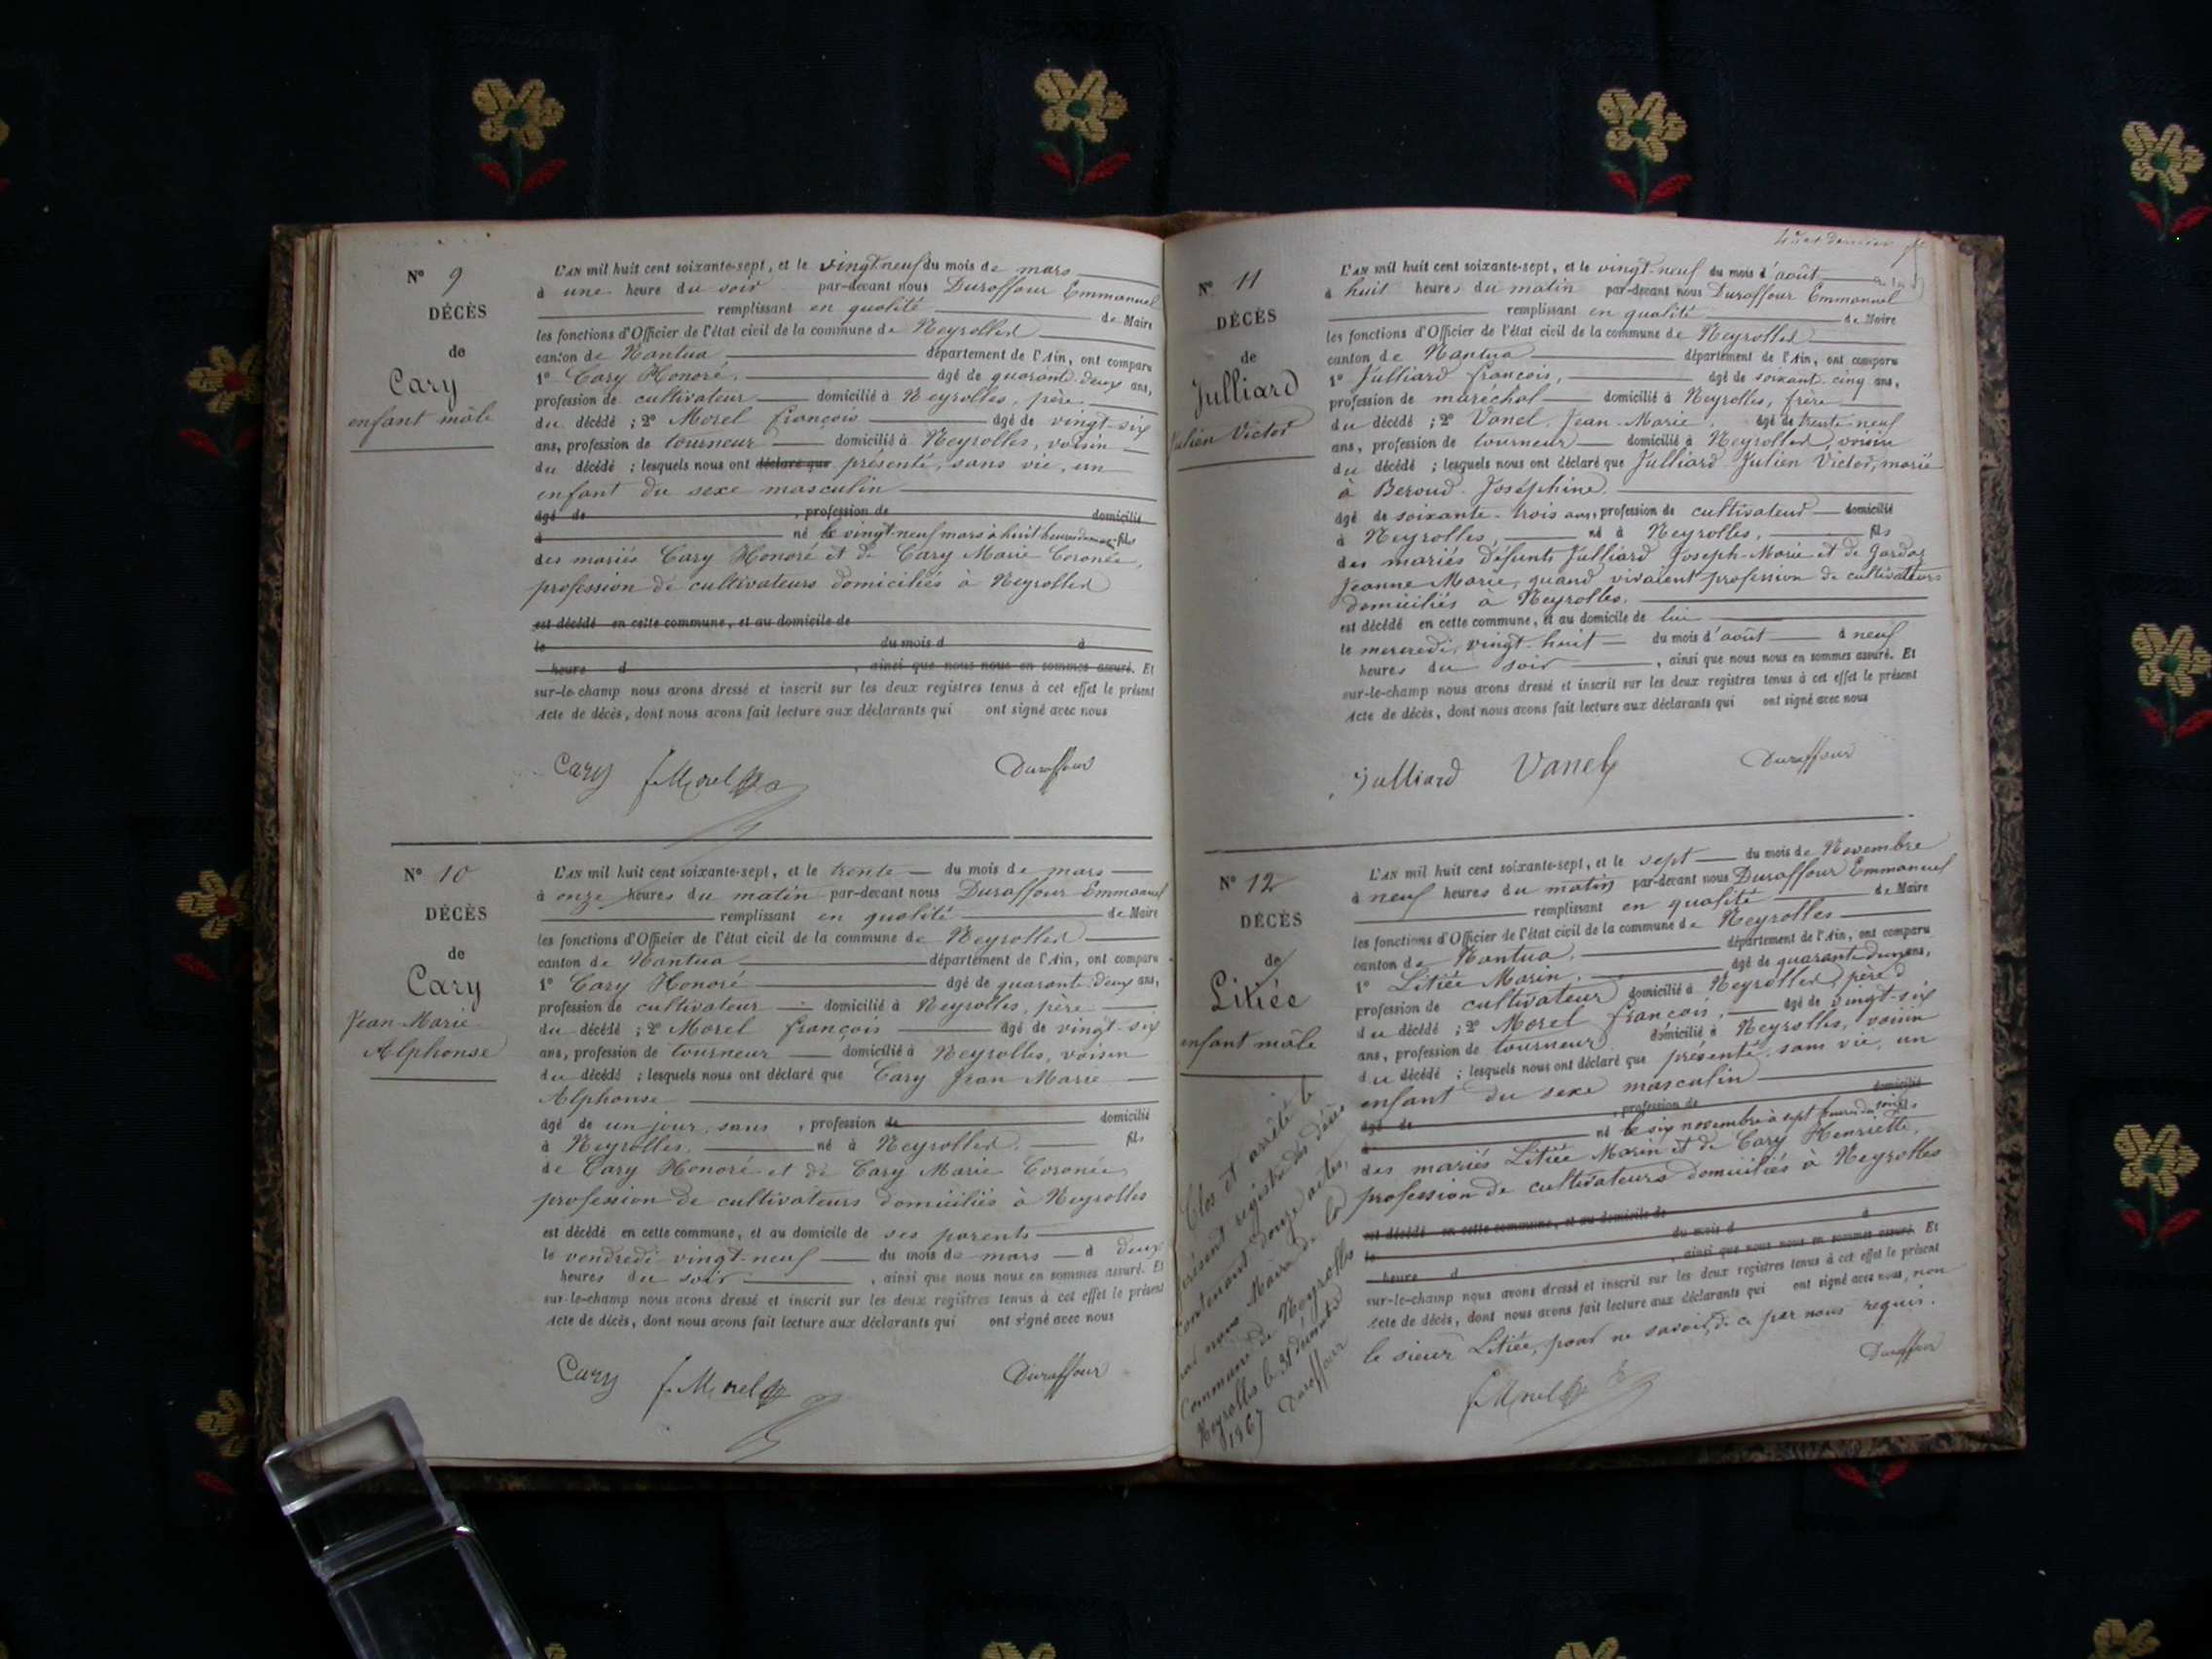 N° 9
DÉCÈS
de
Cary
enfant mâle
L'AN mil huit cent soixante-sept, et le vingt-neuf du mois de mars
à une heure du soir par-devant nous Duraffour Emmanuel
remplissant en qualité de Maire
les fonctions d'Officier de l'état civil de la commune de Neyrolles
canton de Nantua département de l'Ain, ont comparu
1° Cary Honoré, âgé de quarante-deux ans,
profession de cultivateur domicilié à Neyrolles, père
du décédé ; 2° Morel françois âgé de vingt-six
ans, profession de tourneur domicilié à Neyrolles, voisin
du décédé ; lesquels nous ont déclaré que présenté, sans vie, un
enfant du sexe masculin
âgé de , profession de domicilié
à né le vingt-neuf mars à huit heures du matin fils
des mariés Cary Honoré et de Cary Marie Coronée,
profession de cultivateurs domiciliés à Neyrolles
est décédé en cette commune, et au domicile de
le du mois d à
heure d , ainsi que nous nous en sommes assuré. Et
sur-le-champ nous avons dressé et inscrit sur les deux registres tenus à cet effet le présent
Acte de décès, dont nous avons fait lecture aux déclarants qui ont signé avec nous
Cary f. Morel Duraffour
N° 10
DÉCÈS
de
Cary
Jean-Marie
Alphonse
L'AN mil huit cent soixante-sept, et le trente du mois de mars
à onze heures du matin par-devant nous Duraffour Emmanuel
remplissant en qualité de Maire
les fonctions d'Officier de l'état civil de la commune de Neyrolles
canton de Nantua département de l'Ain, ont comparu
1° Cary Honoré âgé de quarante-deux ans,
profession de cultivateur domicilié à Neyrolles, père
du décédé ; 2° Morel françois âgé de vingt-six
ans, profession de tourneur domicilié à Neyrolles, voisin
du décédé ; lesquels nous ont déclaré que Cary Jean Marie
Alphonse
âgé de un jour, sans , profession de domicilié
à Neyrolles, né à Neyrolles, fils
de Cary Honoré et de Cary Marie Coronée,
profession de cultivateurs domiciliés à Neyrolles
est décédé en cette commune, et au domicile de ses parents
le vendredi vingt-neuf du mois de mars à deux
heures du soir , ainsi que nous nous en sommes assuré. Et
sur-le-champ nous avons dressé et inscrit sur les deux registres tenus à cet effet le présent
Acte de décès, dont nous avons fait lecture aux déclarants qui ont signé avec nous
Cary f. Morel Duraffour
et dernier
N° 11
DÉCÈS
de
Julliard
Julien Victor
L'AN mil huit cent soixante-sept, et le vingt-neuf du mois d'août
à huit heures du matin par-devant nous Duraffour Emmanuel
remplissant en qualité de Maire
les fonctions d'Officier de l'état civil de la commune de Neyrolles
canton de Nantua département de l'Ain, ont comparu
1° Julliard françois, âgé de soixante-cinq ans,
profession de maréchal domicilié à Neyrolles, frère
du décédé ; 2° Vanel Jean-Marie, âgé de trente-neuf
ans, profession de tourneur domicilié à Neyrolles, voisin
du décédé ; lesquels nous ont déclaré que Julliard Julien Victor, marié
à Beroud Joséphine,
âgé de soixante-trois ans, profession de cultivateur domicilié
à Neyrolles, né à Neyrolles, fils
des mariés défunts Julliard Joseph-Marie et de
Jeanne Marie, quand vivaient profession de cultivateurs
domiciliés à Neyrolles.
est décédé en cette commune, et au domicile de lui
le mercredi vingt-huit du mois d'août à neuf
heures du soir , ainsi que nous nous en sommes assuré. Et
sur-le-champ nous avons dressé et inscrit sur les deux registres tenus à cet effet le présent
Acte de décès, dont nous avons fait lecture aux déclarants qui ont signé avec nous
Julliard Vanel Duraffour
N° 12
DÉCÈS
de
Litiée
enfant mâle
L'AN mil huit cent soixante-sept, et le sept du mois de Novembre
à neuf heures du matin par-devant nous Duraffour Emmanuel
remplissant en qualité de Maire
les fonctions d'Officier de l'état civil de la commune de Neyrolles
canton de Nantua, département de l'Ain, ont comparu
1° Litiée Marin, âgé de quarante ans,
profession de cultivateur domicilié à Neyrolles, père
du décédé ; 2° Morel françois, âgé de vingt-six
ans, profession de tourneur domicilié à Neyrolles, voisin
du décédé ; lesquels nous ont déclaré que présenté, sans vie, un
enfant du sexe masculin
âgé de , profession de domicilié
à né le six novembre à sept heures du soir fils
des mariés Litiée Marin et de Cary Henriette,
profession de cultivateurs domiciliés à Neyrolles
est décédé en cette commune, et au domicile de
le du mois d à
heure d , ainsi que nous nous en sommes assuré. Et
sur-le-champ nous avons dressé et inscrit sur les deux registres tenus à cet effet le présent
Acte de décès, dont nous avons fait lecture aux déclarants qui ont signé avec nous, non
le sieur Litiée, pour ne savoir, de ce par nous requis.
f. Morel Duraffour
Clos et arrêté le
présent registre des décès
contenant douze actes,
par nous Maire de la
Commune de Neyrolles
Neyrolles le 31 décembre
1867 Duraffour